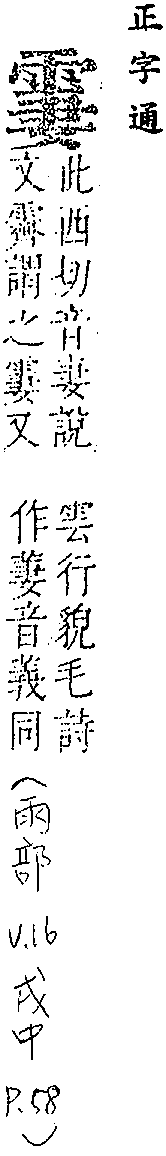 正字通
霋
此西切音妻說
文霽謂之霋又
雲行貌毛詩
作萋音義同
(雨部 V.16 戌中 P.58)